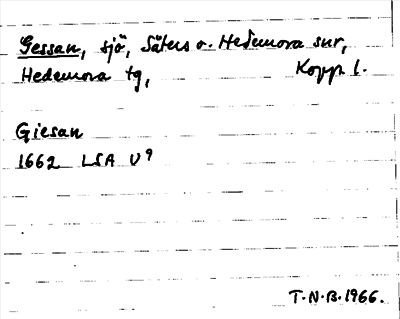 Gessan, sjö, Säters o. Hedemora snr,
Hedemora tg, Kopp. l.
Giesan
1662 LSA U⁹
T.N.B. 1966.